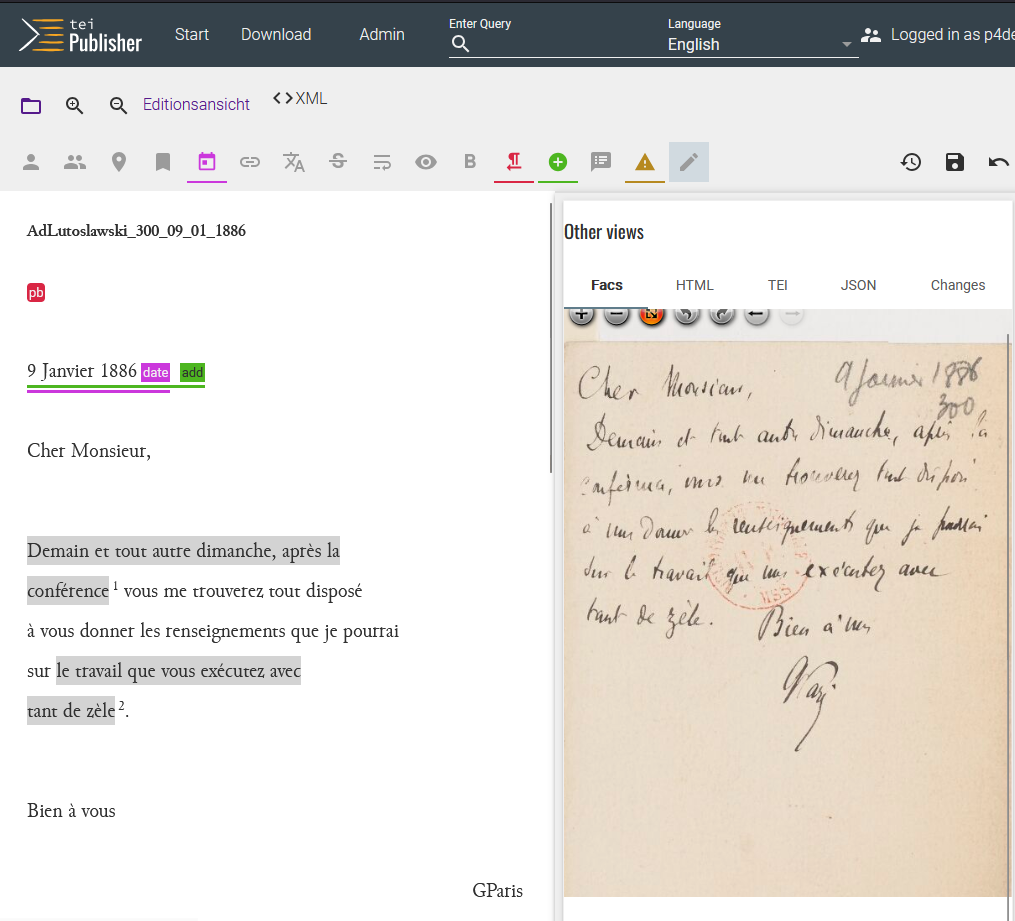 tei
Publisher
Start
Download
Admin
Enter Query
Language
English
Logged in as p4de
Editionsansicht
<> XML
B
AdLutoslawski_300_09_01_1886
pb
9 Janvier 1886 date add
Cher Monsieur,
Demain et tout autre dimanche, après la
conférence 1 vous me trouverez tout disposé
à vous donner les renseignements que je pourrai
sur le travail que vous exécutez avec
tant de zèle 2.
Bien à vous
GParis
Other views
Facs
HTML
TEI
JSON
Changes
Cher Monsieur,
9 Janvier 1886
300
Demain et tout autre dimanche, après la
conférence, vous me trouverez tout disposé
à vous donner les renseignements que je pourrai
sur le travail que vous exécutez avec
tant de zèle.
Bien à vous
GParis
MSS